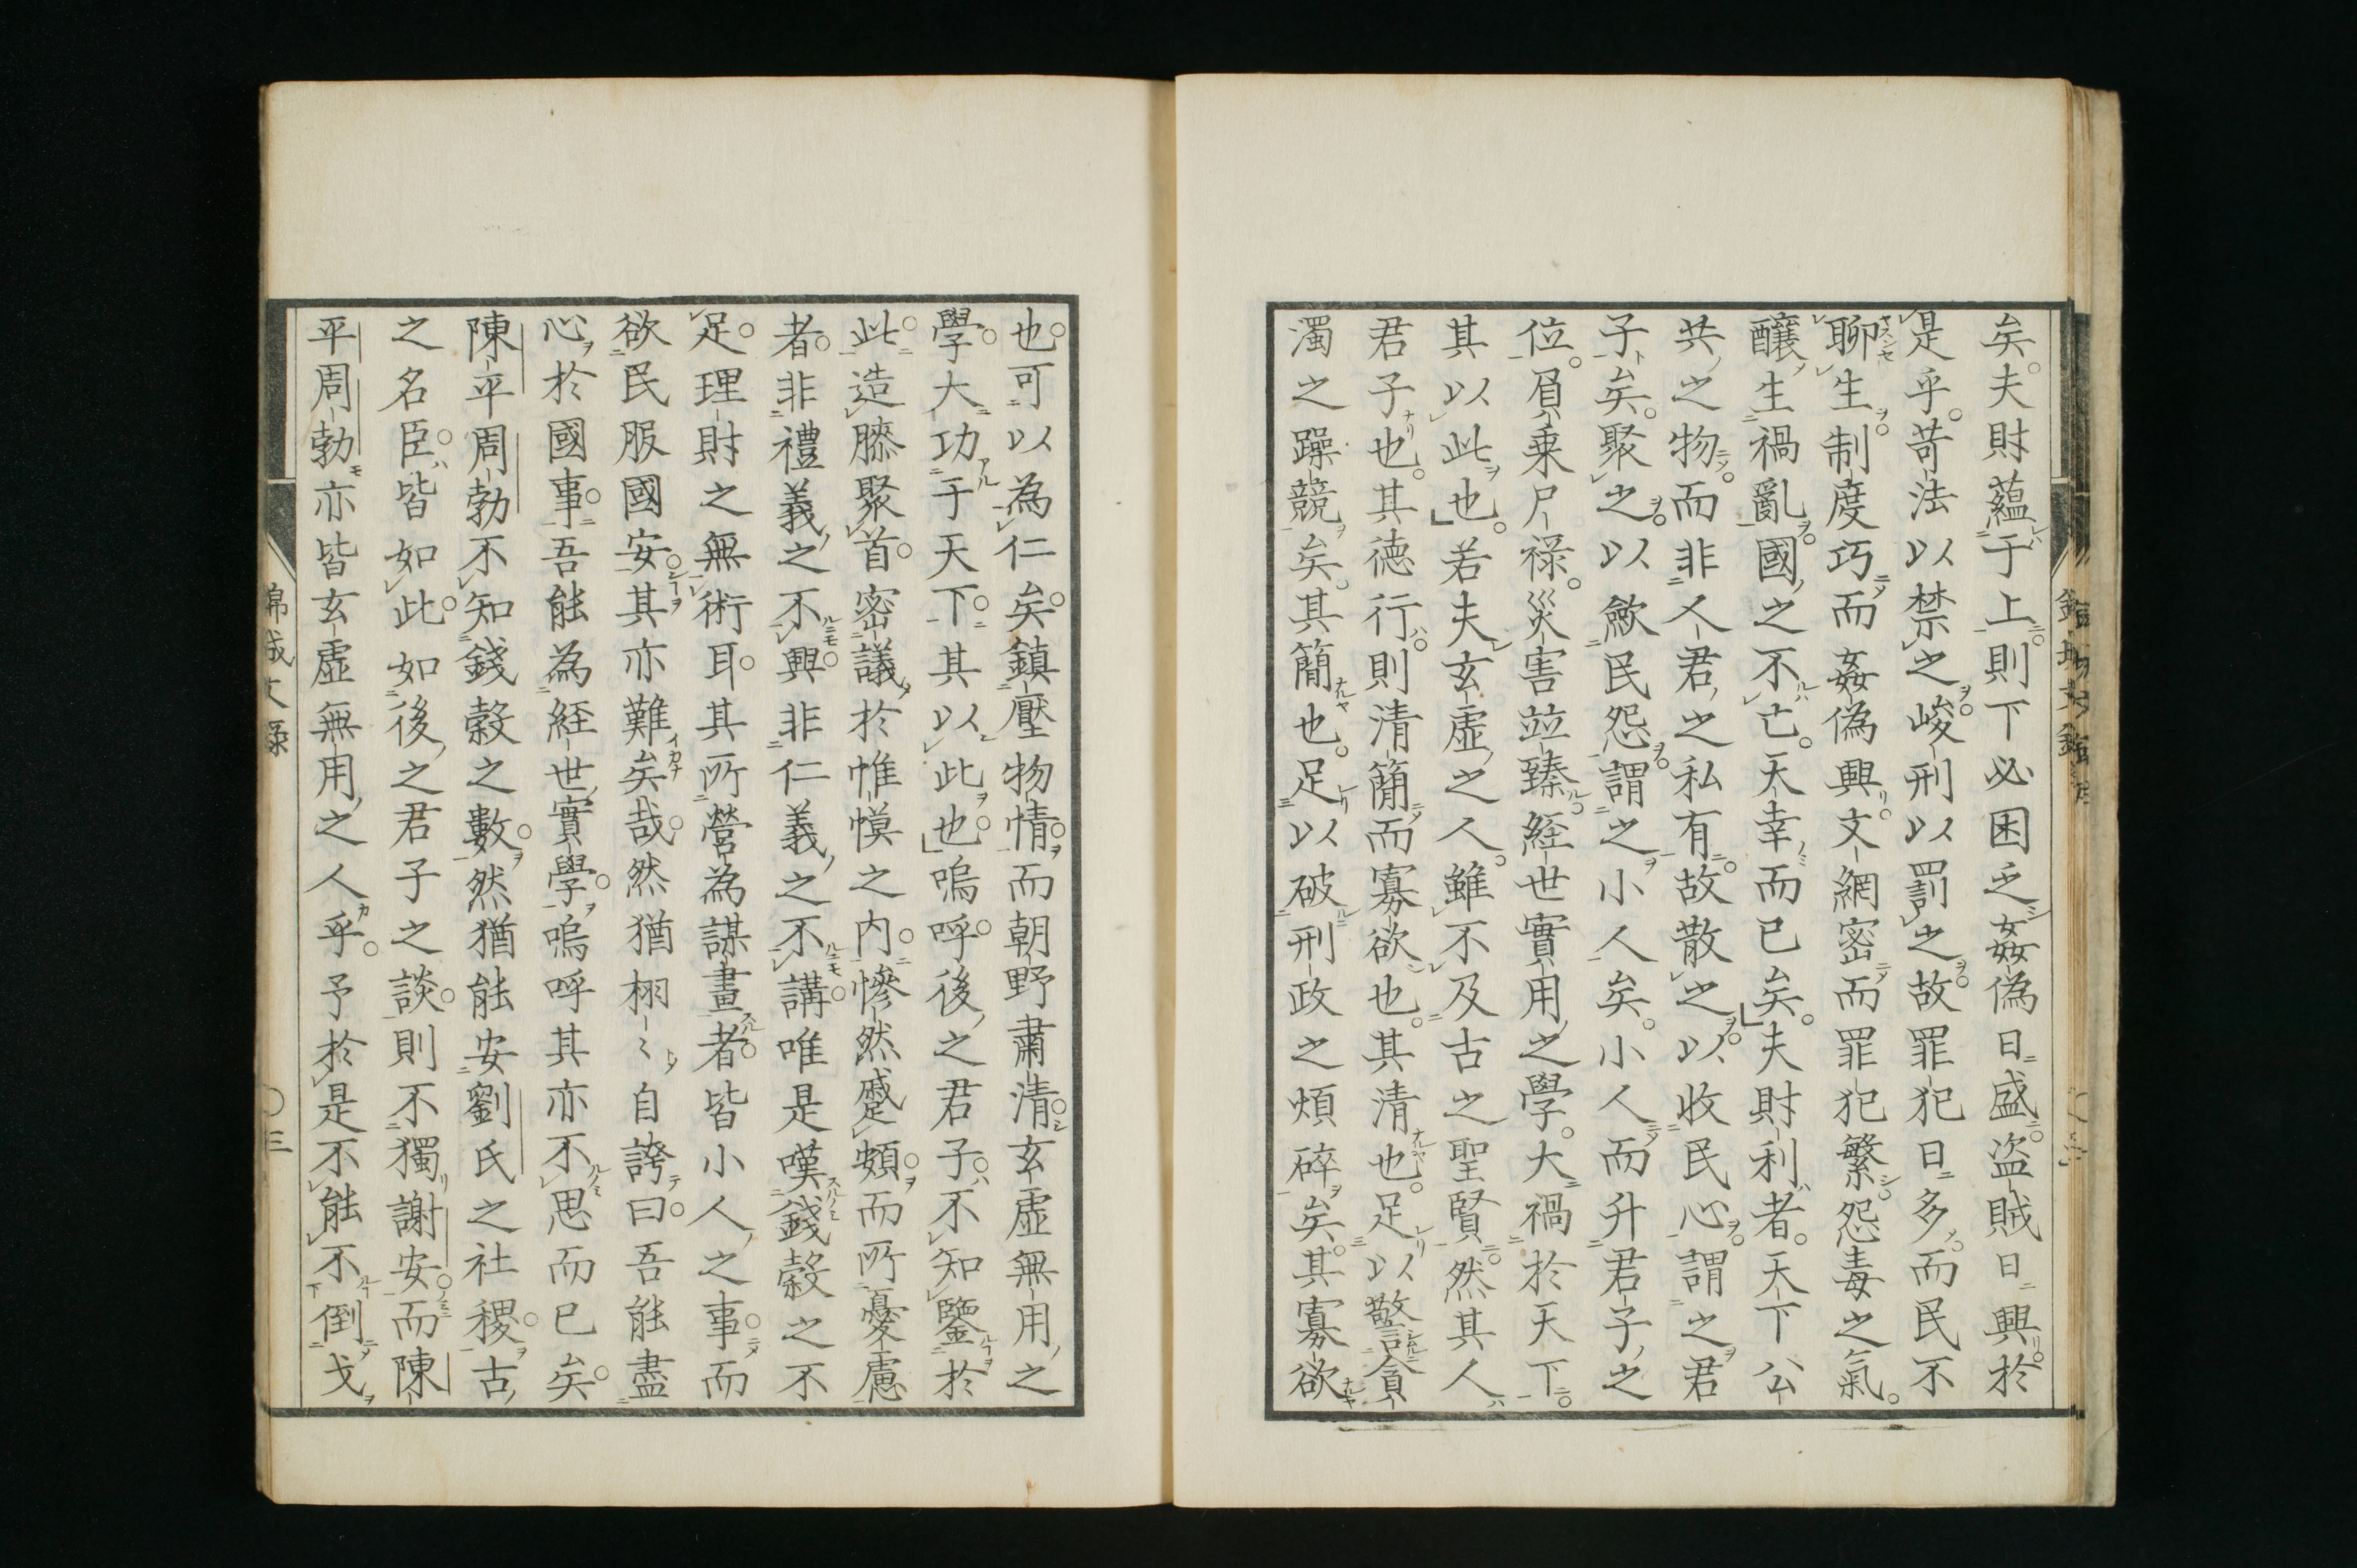 矣。夫財蘊于上。則下必困乏。姦偽日盛。盜賊日興。於
是乎。苛法以禁之。峻刑以罰之。故罪犯日多。而民不
聊生。制度巧而姦偽興。文網密而罪犯繁。怨毒之氣。
釀生禍亂。國之不亡。天幸而已矣。」夫財利者。天下公
共之物。而非人君之私有。故散之。以收民心。謂之君
子矣。聚之。以斂民怨。謂之小人矣。小人而升君子之
位。負乘尸祿。災害竝臻。経世實用之學。大禍於天下。
其以此也。」若夫玄虛之人。雖不及古之聖賢。然其人
君子也。其德行。則清簡而寡欲也。其清也。足以警貪
濁之躁競矣。其簡也。足以破刑政之煩碎矣。其寡欲
也。可以為仁矣。鎮壓物情。而朝野肅清。玄虛無用之
學。大功于天下。其以此也。」嗚呼。後之君子。不知鑒於
此。造膝聚首。密議於帷幙之內。慘然蹙頞。而所憂慮
者。非禮義之不興。非仁義之不講。唯是嘆錢穀之不
足。理財之無術耳。其所營為謀畫者。皆小人之事。而
欲民服國安。其亦難矣哉。然猶栩〻自誇曰。吾能盡
心於國事。吾能為経世實學。嗚呼其亦不思而已矣。
陳平周勃不知錢穀之數。然猶能安劉氏之社稷。古
之名臣。皆如此。如後之君子之談。則不獨謝安。而陳
平周勃亦皆玄虛無用之人乎。予於是不能不倒戈